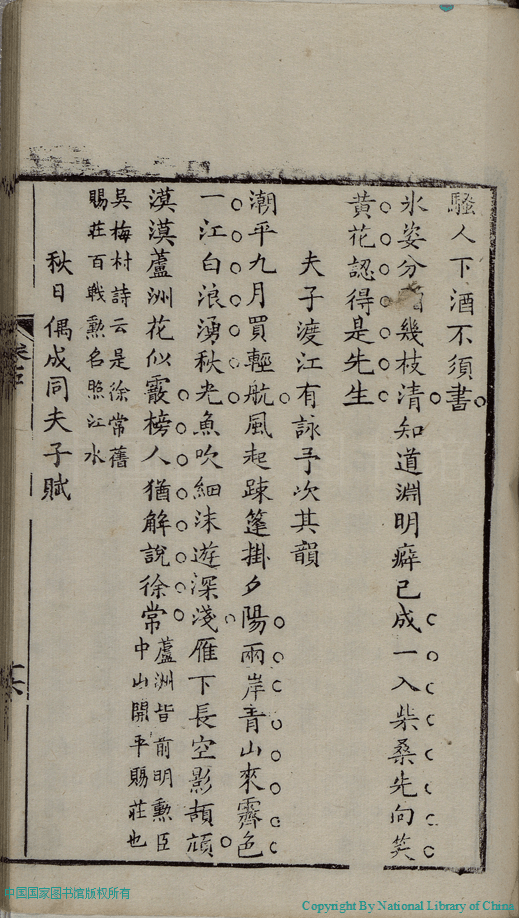 騷人下酒不須書
氷姿分幾枝清知道淵明癖已成一入柴桑先向笑
黃花認得是先生
夫子渡江有詠予次其韻
潮平九月買輕航風起踈篷掛夕陽兩岸青山來霽色
一江白浪湧秋光魚吹細沫遊深淺雁下長空影頡頏
漠漠蘆洲花似霰榜人猶解說徐常
蘆洲皆前明勲臣
中山開平賜莊也
吳梅村詩云是徐常舊
賜莊百戰勲名照江水
秋日偶成同夫子賦
中国国家图书馆版权所有
Copyright By National Library of China